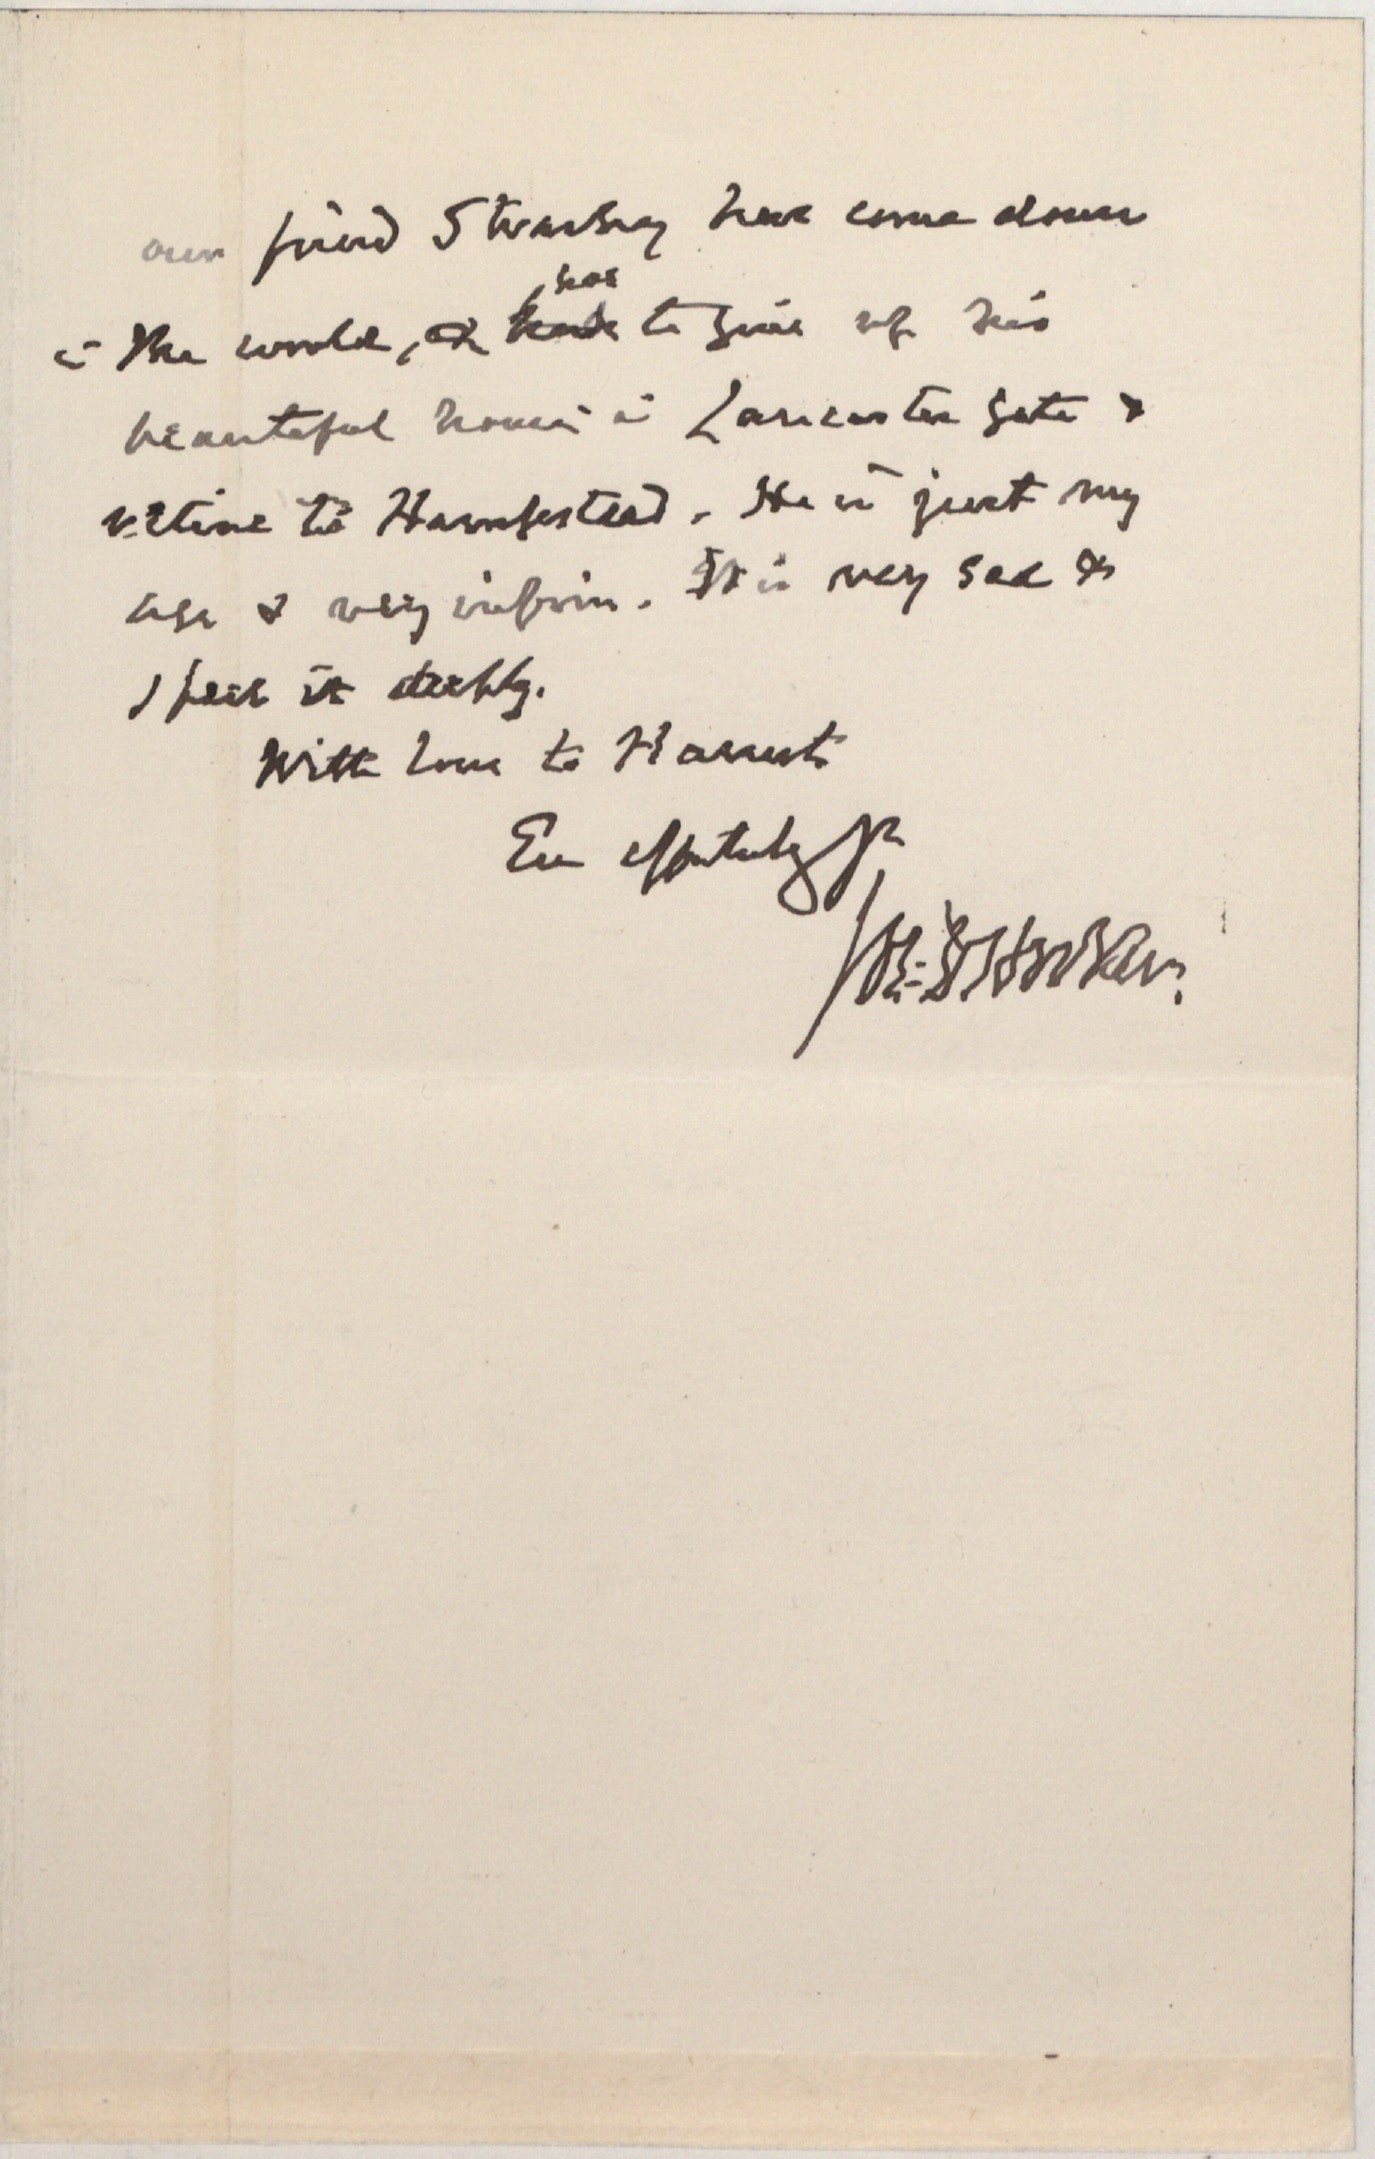 our friend Strachey have come down
in the world, & has to give up his
beautiful house in Lancaster Gate &
retire to Hampstead. He is just my
age & very infirm. It is very sad &
I feel it deeply.
With love to Harriet
Ever affectately yr
Jos. D. Hooker.